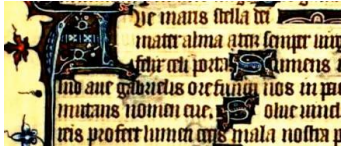 Ve maris stella dei
mater alma atqz semper uirg
felix celi porta Sumens i
lud aue gabrielis ore funda nos in pa
mutans nomen eue. Solue uincl
reis profer lumen cecis mala nostra p